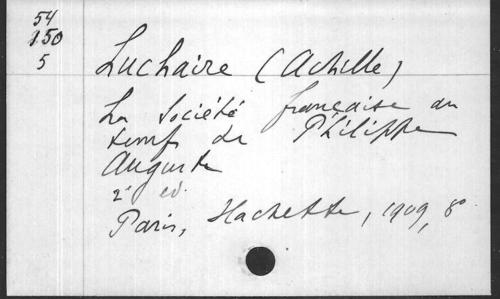 54
150
5
Luchaire (Achille)
La Société française au
temps de Philippe
Auguste
2e ed.
Paris, Hachette, 1909, 8º